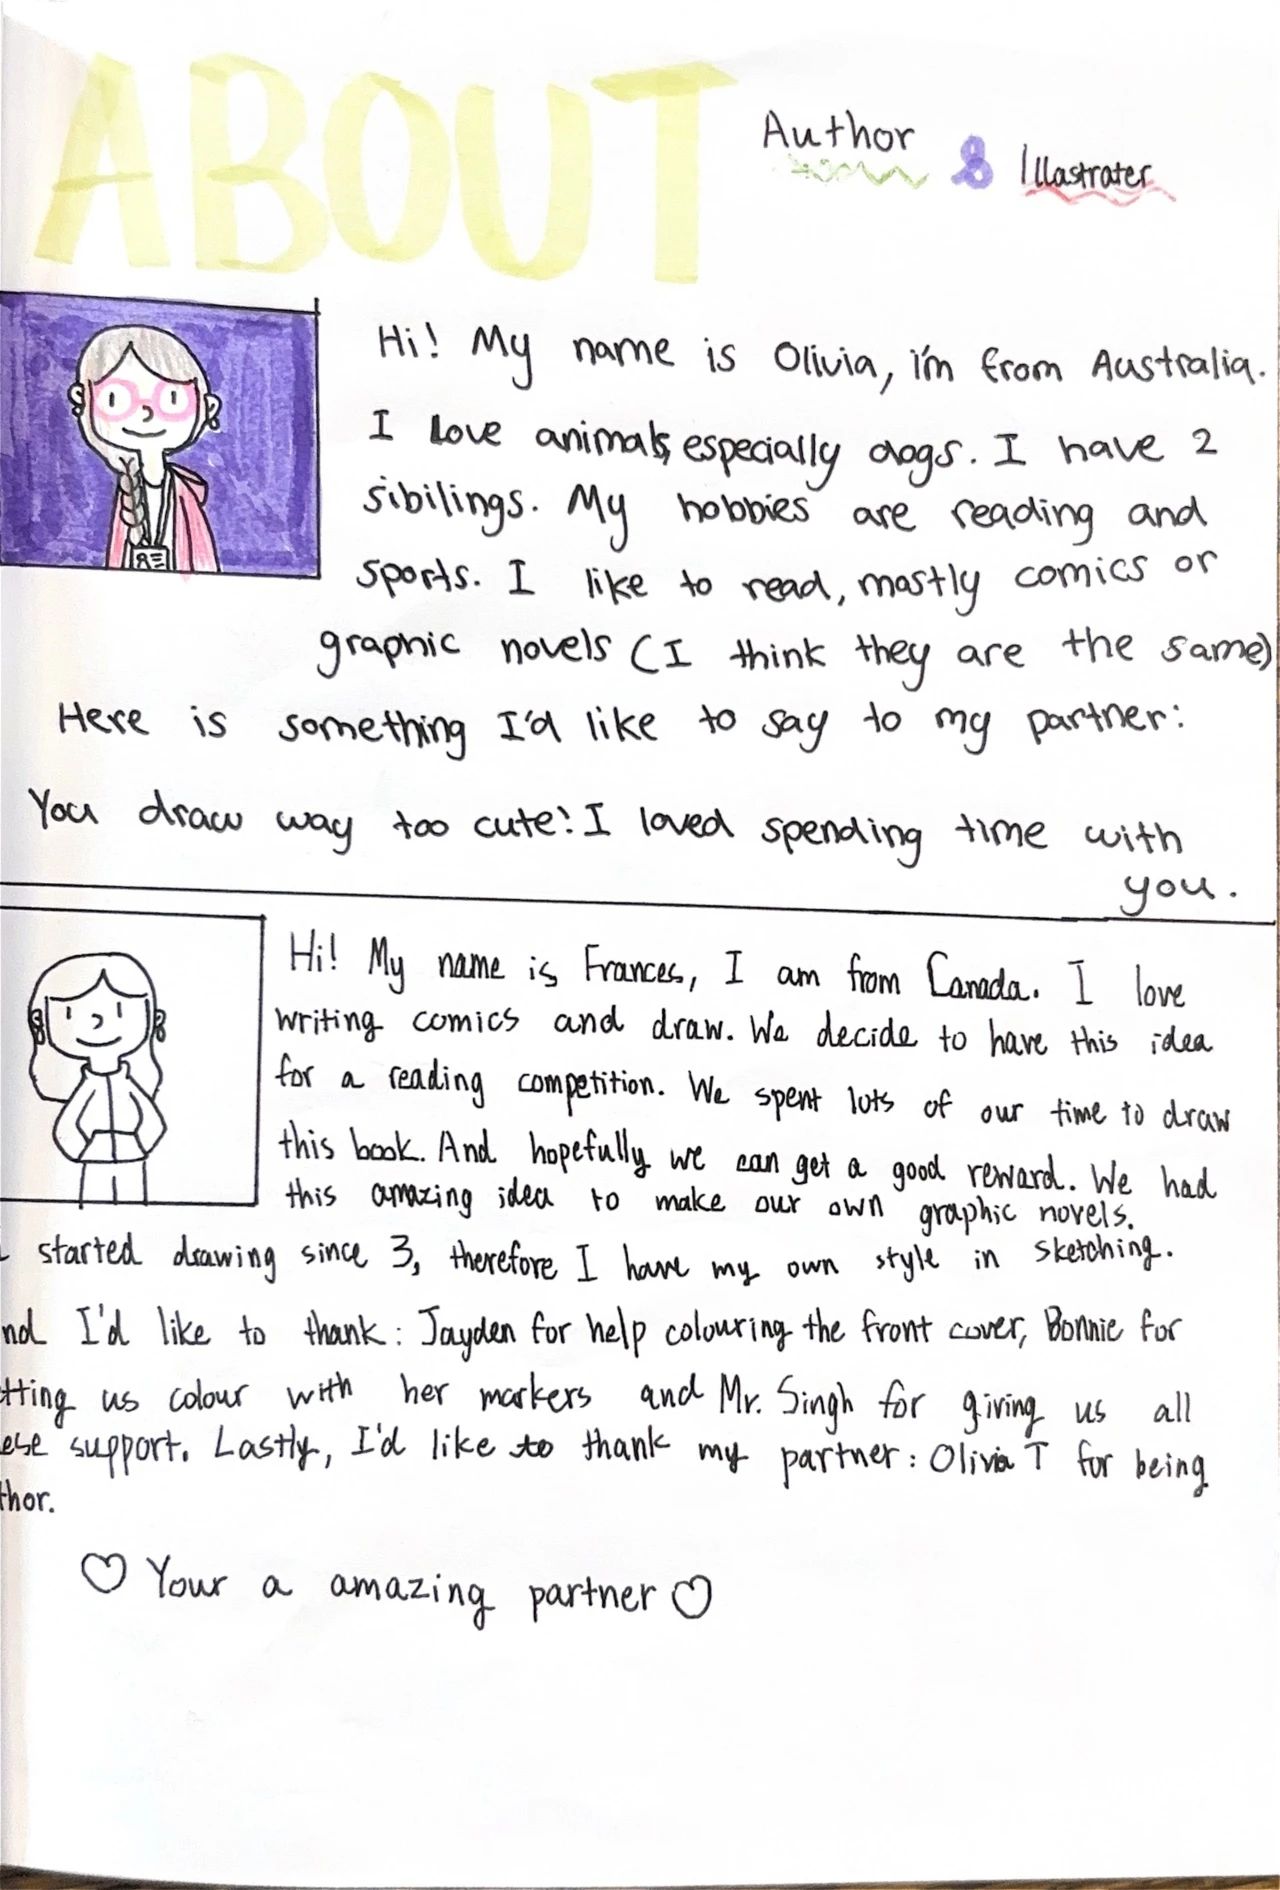 ABOUT
Author & Illastrater
Hi! My name is Olivia, i'm from Australia.
I love animals, especially dogs. I have 2
sibilings. My hobbies are reading and
sports. I like to read, mostly comics or
graphic novels (I think they are the same)
Here is something I'd like to say to my partner:
You draw way too cute! I loved spending time with
you.
Hi! My name is Frances, I am from Canada. I love
writing comics and draw. We decide to have this idea
for a reading competition. We spent lots of our time to draw
this book. And hopefully we can get a good reward. We had
this amazing idea to make our own graphic novels.
started drawing since 3, therefore I have my own style in sketching.
nd I'd like to thank: Jayden for help colouring the front cover, Bonnie for
tting us colour with her markers and Mr. Singh for giving us all
ese support. Lastly, I'd like to thank my partner: Olivia T for being
thor.
♡ Your a amazing partner ♡